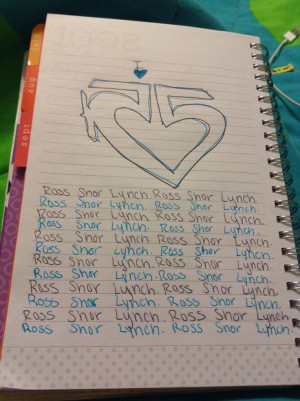 I
R5
aug
sept
Ross Shor Lynch. Ross Shor Lynch.
Ross Shor Lynch. Ross Shor Lynch.
Ross Shor Lynch. Ross Shor Lynch.
Ross Shor Lynch. Ross Shor Lynch.
Ross Shor Lynch. Ross Shor Lynch.
Ross Shor Lynch. Ross Shor Lynch.
Ross Shor Lynch. Ross Shor Lynch.
Ross Shor Lynch. Ross Shor Lynch.
Ross Shor Lynch. Ross Shor Lynch.
Ross Shor Lynch. Ross Shor Lynch.
Ross Shor Lynch. Ross Shor Lynch.
Ross Shor Lynch. Ross Shor Lynch.